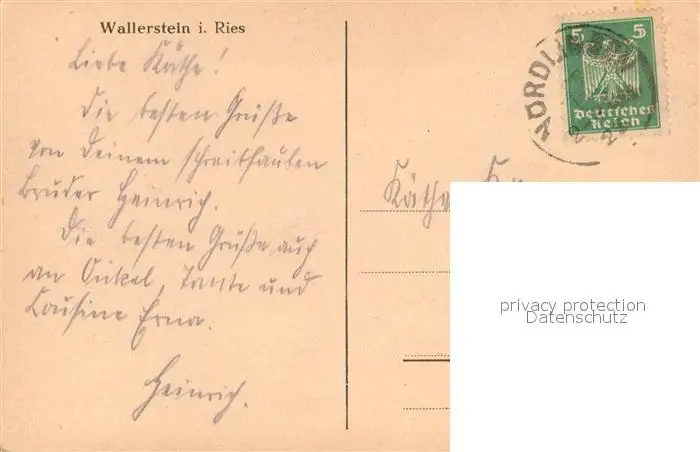 Wallerstein i. Ries
Liebe Käthe!
Die besten Grüße
von Deinem schreibfaulen
Bruder Heinrich.
Die besten Grüße auch
an Onkel, Tante und
Cousine Erna.
Heinrich.
5 5
Deutsches
Reich
NÖRDLI
Käthe
privacy protection
Datenschutz